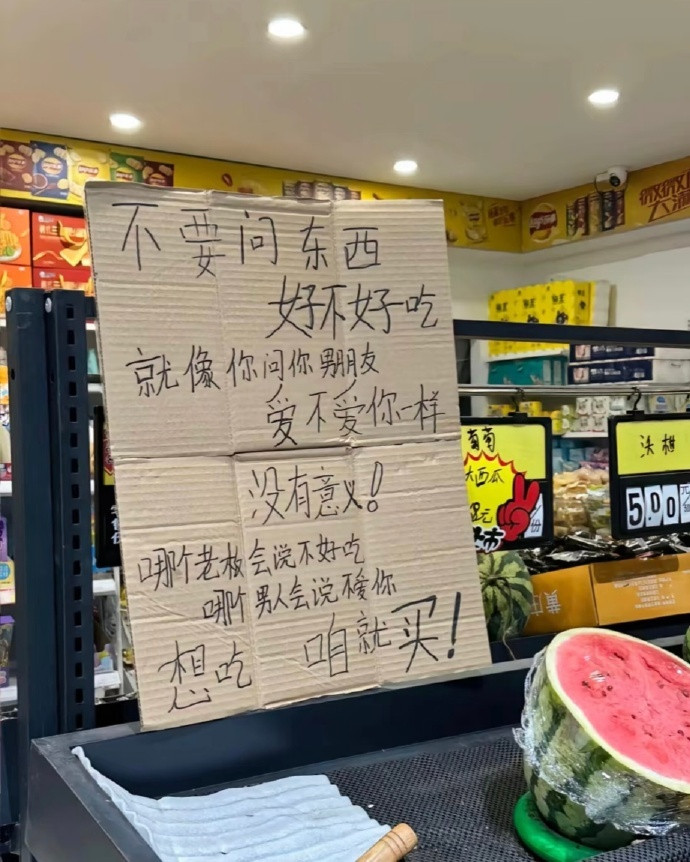 不要问东西
好不好吃
就像你问你男朋友
爱不爱你一样
没有意义!
哪个老板会说不好吃
哪个男人会说不爱你
想吃 咱就买!
葡萄
大西瓜
份
沃柑
5.00
元